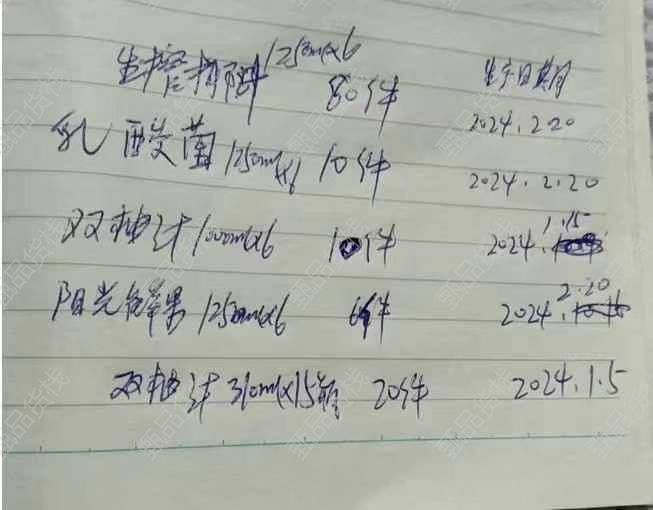 生榨猕猴 1250ml×6 80件 生产日期
2024.2.20
乳酸菌 1250ml×6 10件 2024.2.20
双柚汁 1000ml×6 10件 2024.1.15
阳光苹果 1250ml×6 6件 2024.2.20
双柚汁 310ml×15瓶 20件 2024.1.5